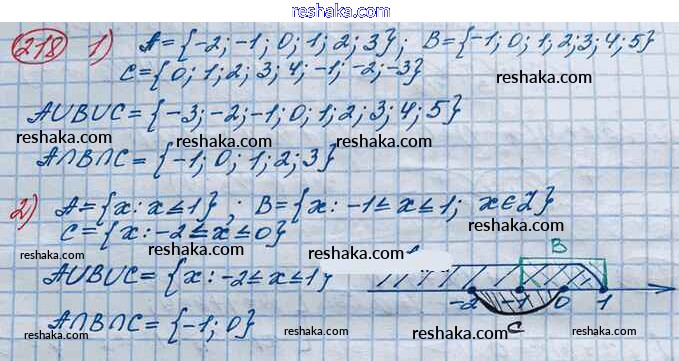 reshaka.com
218 1) A = {-2; -1; 0; 1; 2; 3}; B = {-1; 0; 1; 2; 3; 4; 5}
C = {0; 1; 2; 3; 4; -1; -2; -3}
reshaka.com
A∪B∪C = {-3; -2; -1; 0; 1; 2; 3; 4; 5}
reshaka.com reshaka.com reshaka.com
A∩B∩C = {-1; 0; 1; 2; 3}
reshaka.com reshaka.com
2) A = {x: x ≤ 1}; B = {x: -1 ≤ x ≤ 1; x ∈ Z}
C = {x: -2 ≤ x ≤ 0}
reshaka.com reshaka.com reshaka.com
B
A∪B∪C = {x: -2 ≤ x ≤ 1}
-2 -1 0 1
C
A∩B∩C = {-1; 0}
reshaka.com reshaka.com reshaka.com